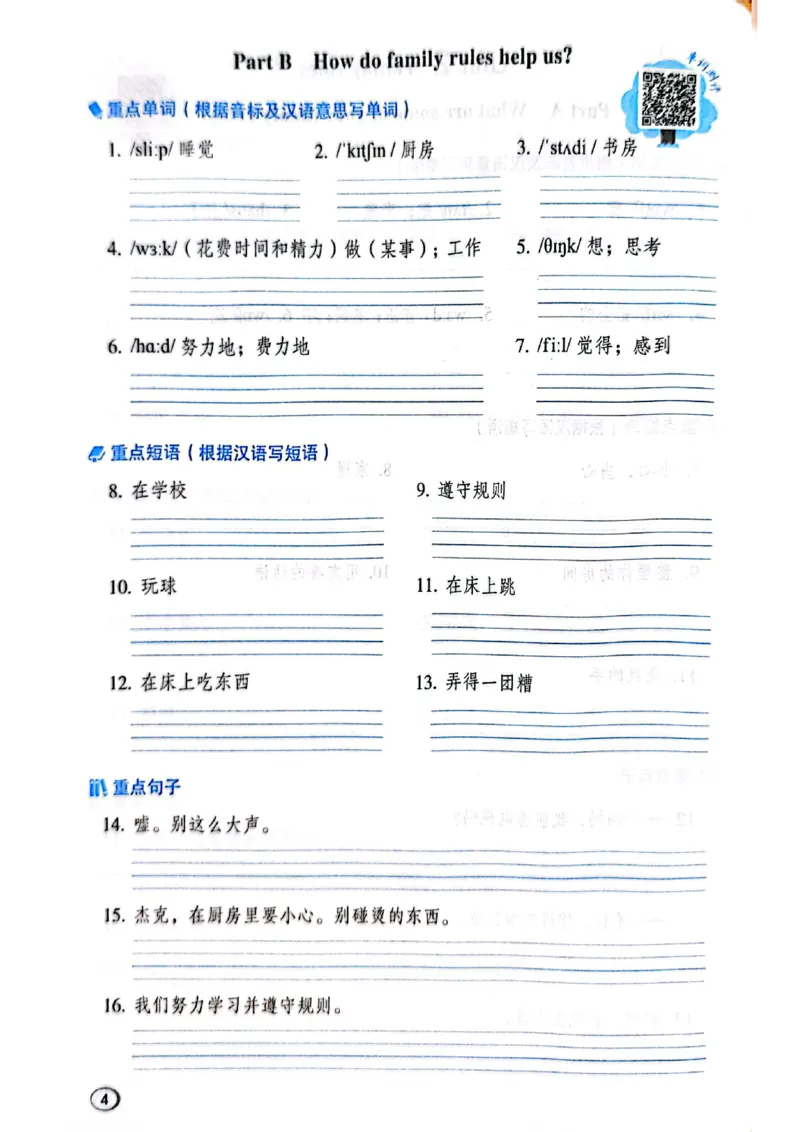 Part B How do family rules help us?
单词测评
重点单词（根据音标及汉语意思写单词）
1. /sliːp/ 睡觉
2. /ˈkɪtʃɪn/ 厨房
3. /ˈstʌdi/ 书房
4. /wɜːk/（花费时间和精力）做（某事）；工作
5. /θɪŋk/ 想；思考
6. /hɑːd/ 努力地；费力地
7. /fiːl/ 觉得；感到
重点短语（根据汉语写短语）
8. 在学校
9. 遵守规则
10. 玩球
11. 在床上跳
12. 在床上吃东西
13. 弄得一团糟
重点句子
14. 嘘。别这么大声。
15. 杰克，在厨房里要小心。别碰烫的东西。
16. 我们努力学习并遵守规则。
4